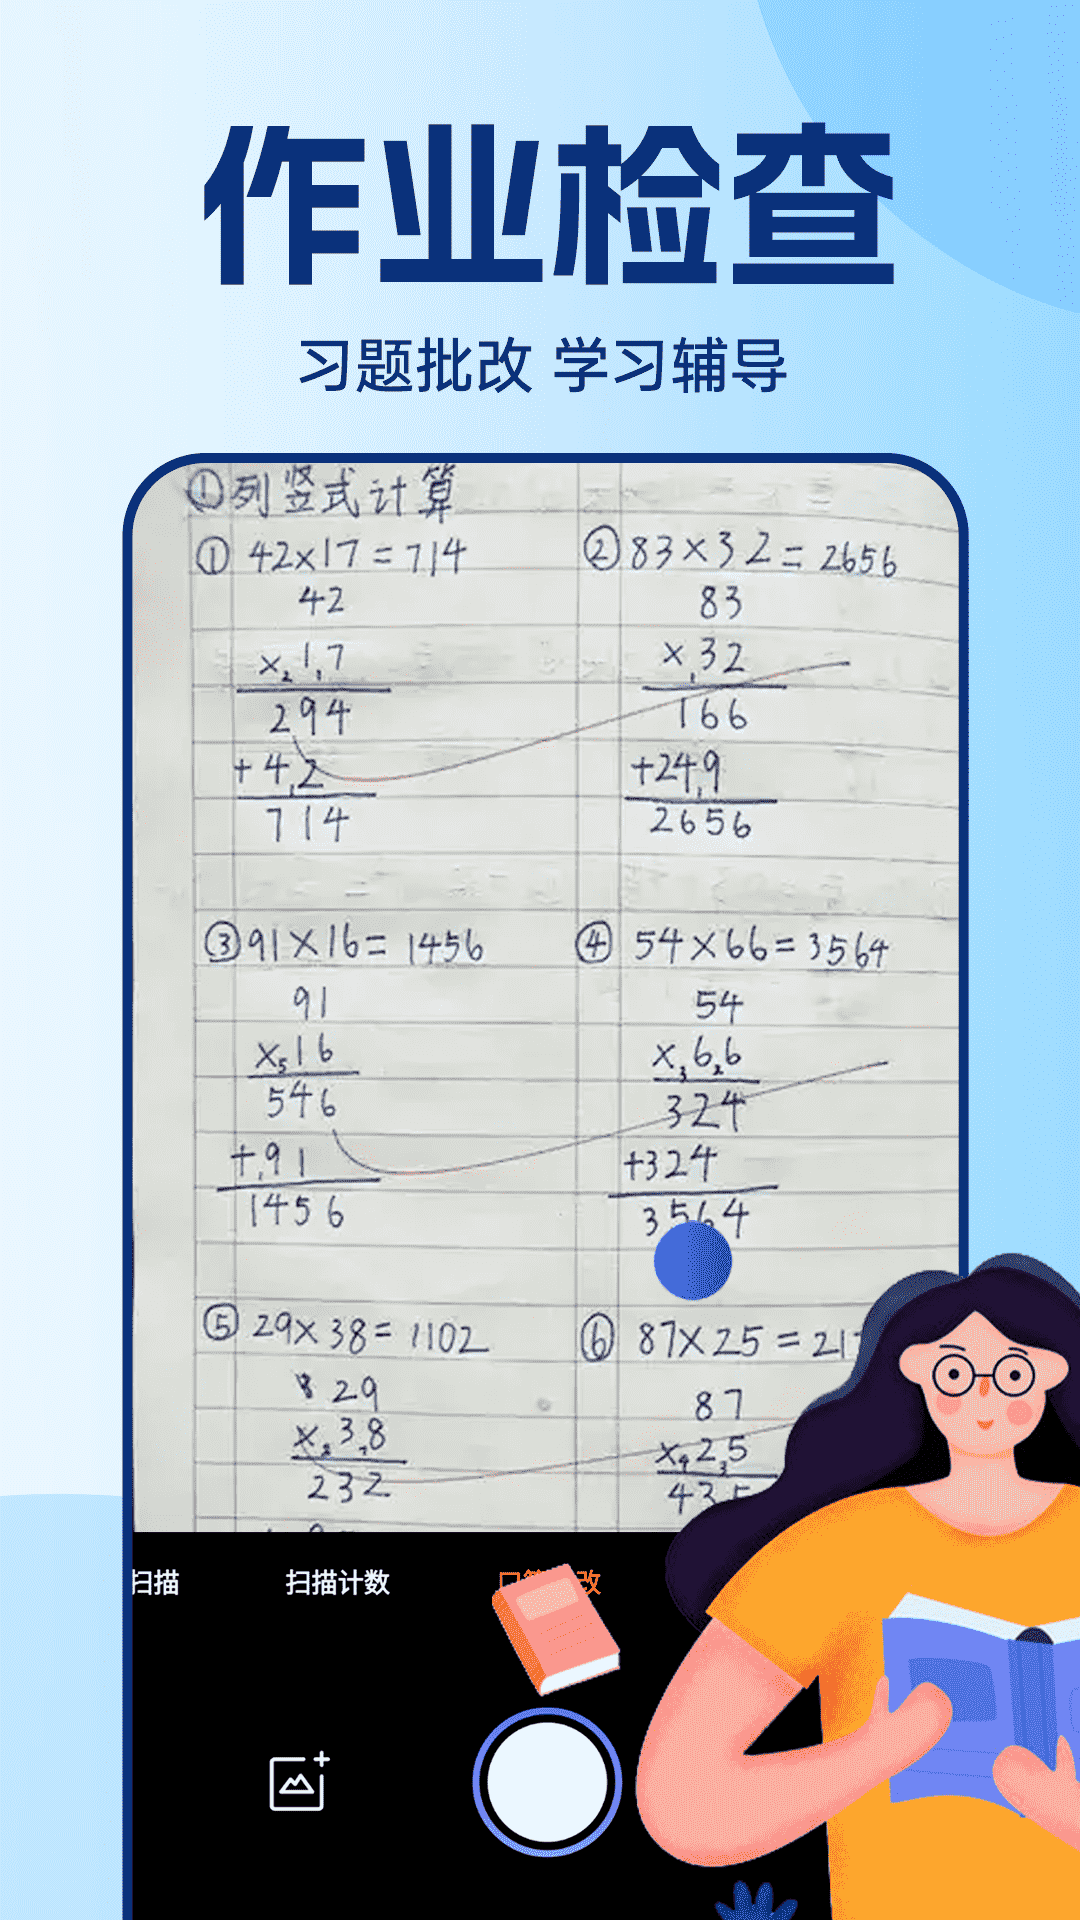 作业检查
习题批改 学习辅导
①列竖式计算
① 42×17=714
42
×₂1,7
294
+4,2
714
② 83×32=2656
83
×,32
166
+24,9
2656
③ 91×16=1456
91
×₅16
546
+,91
1456
④ 54×66=3564
54
×₃6₂6
324
+324
3564
⑤ 29×38=1102
29
×₂3,8
232
⑥ 87×25=21
87
×₄2₃5
435
扫描
扫描计数